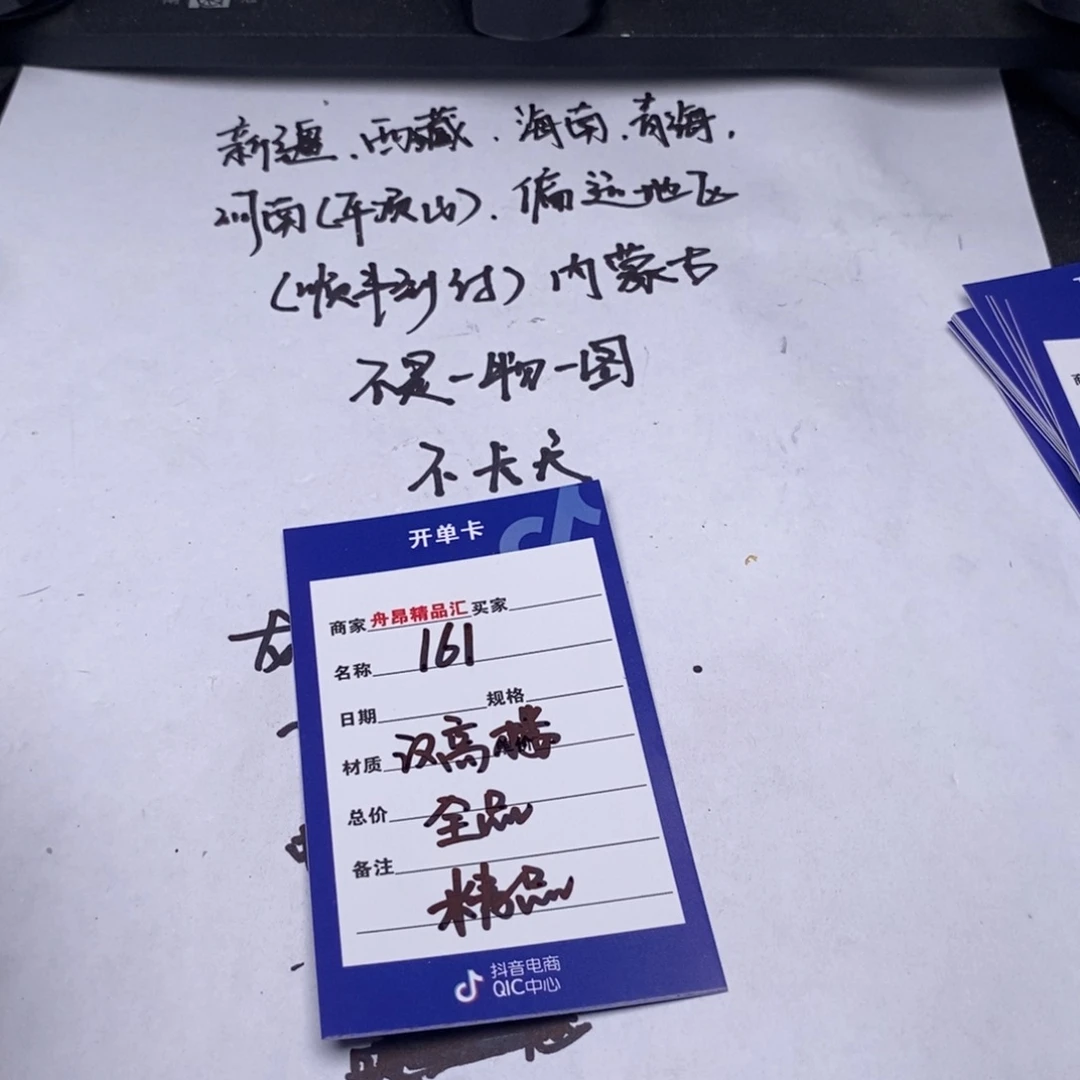 新疆、西藏、海南、青海、
河南(平顶山)、偏远地区
(顺丰到付)内蒙古
不是一物一图
不卡天
开单卡
商家 舟昂精品汇 买家
名称 161
日期 规格
材质 汉高
总价 全品
备注
精品
抖音电商
QIC中心